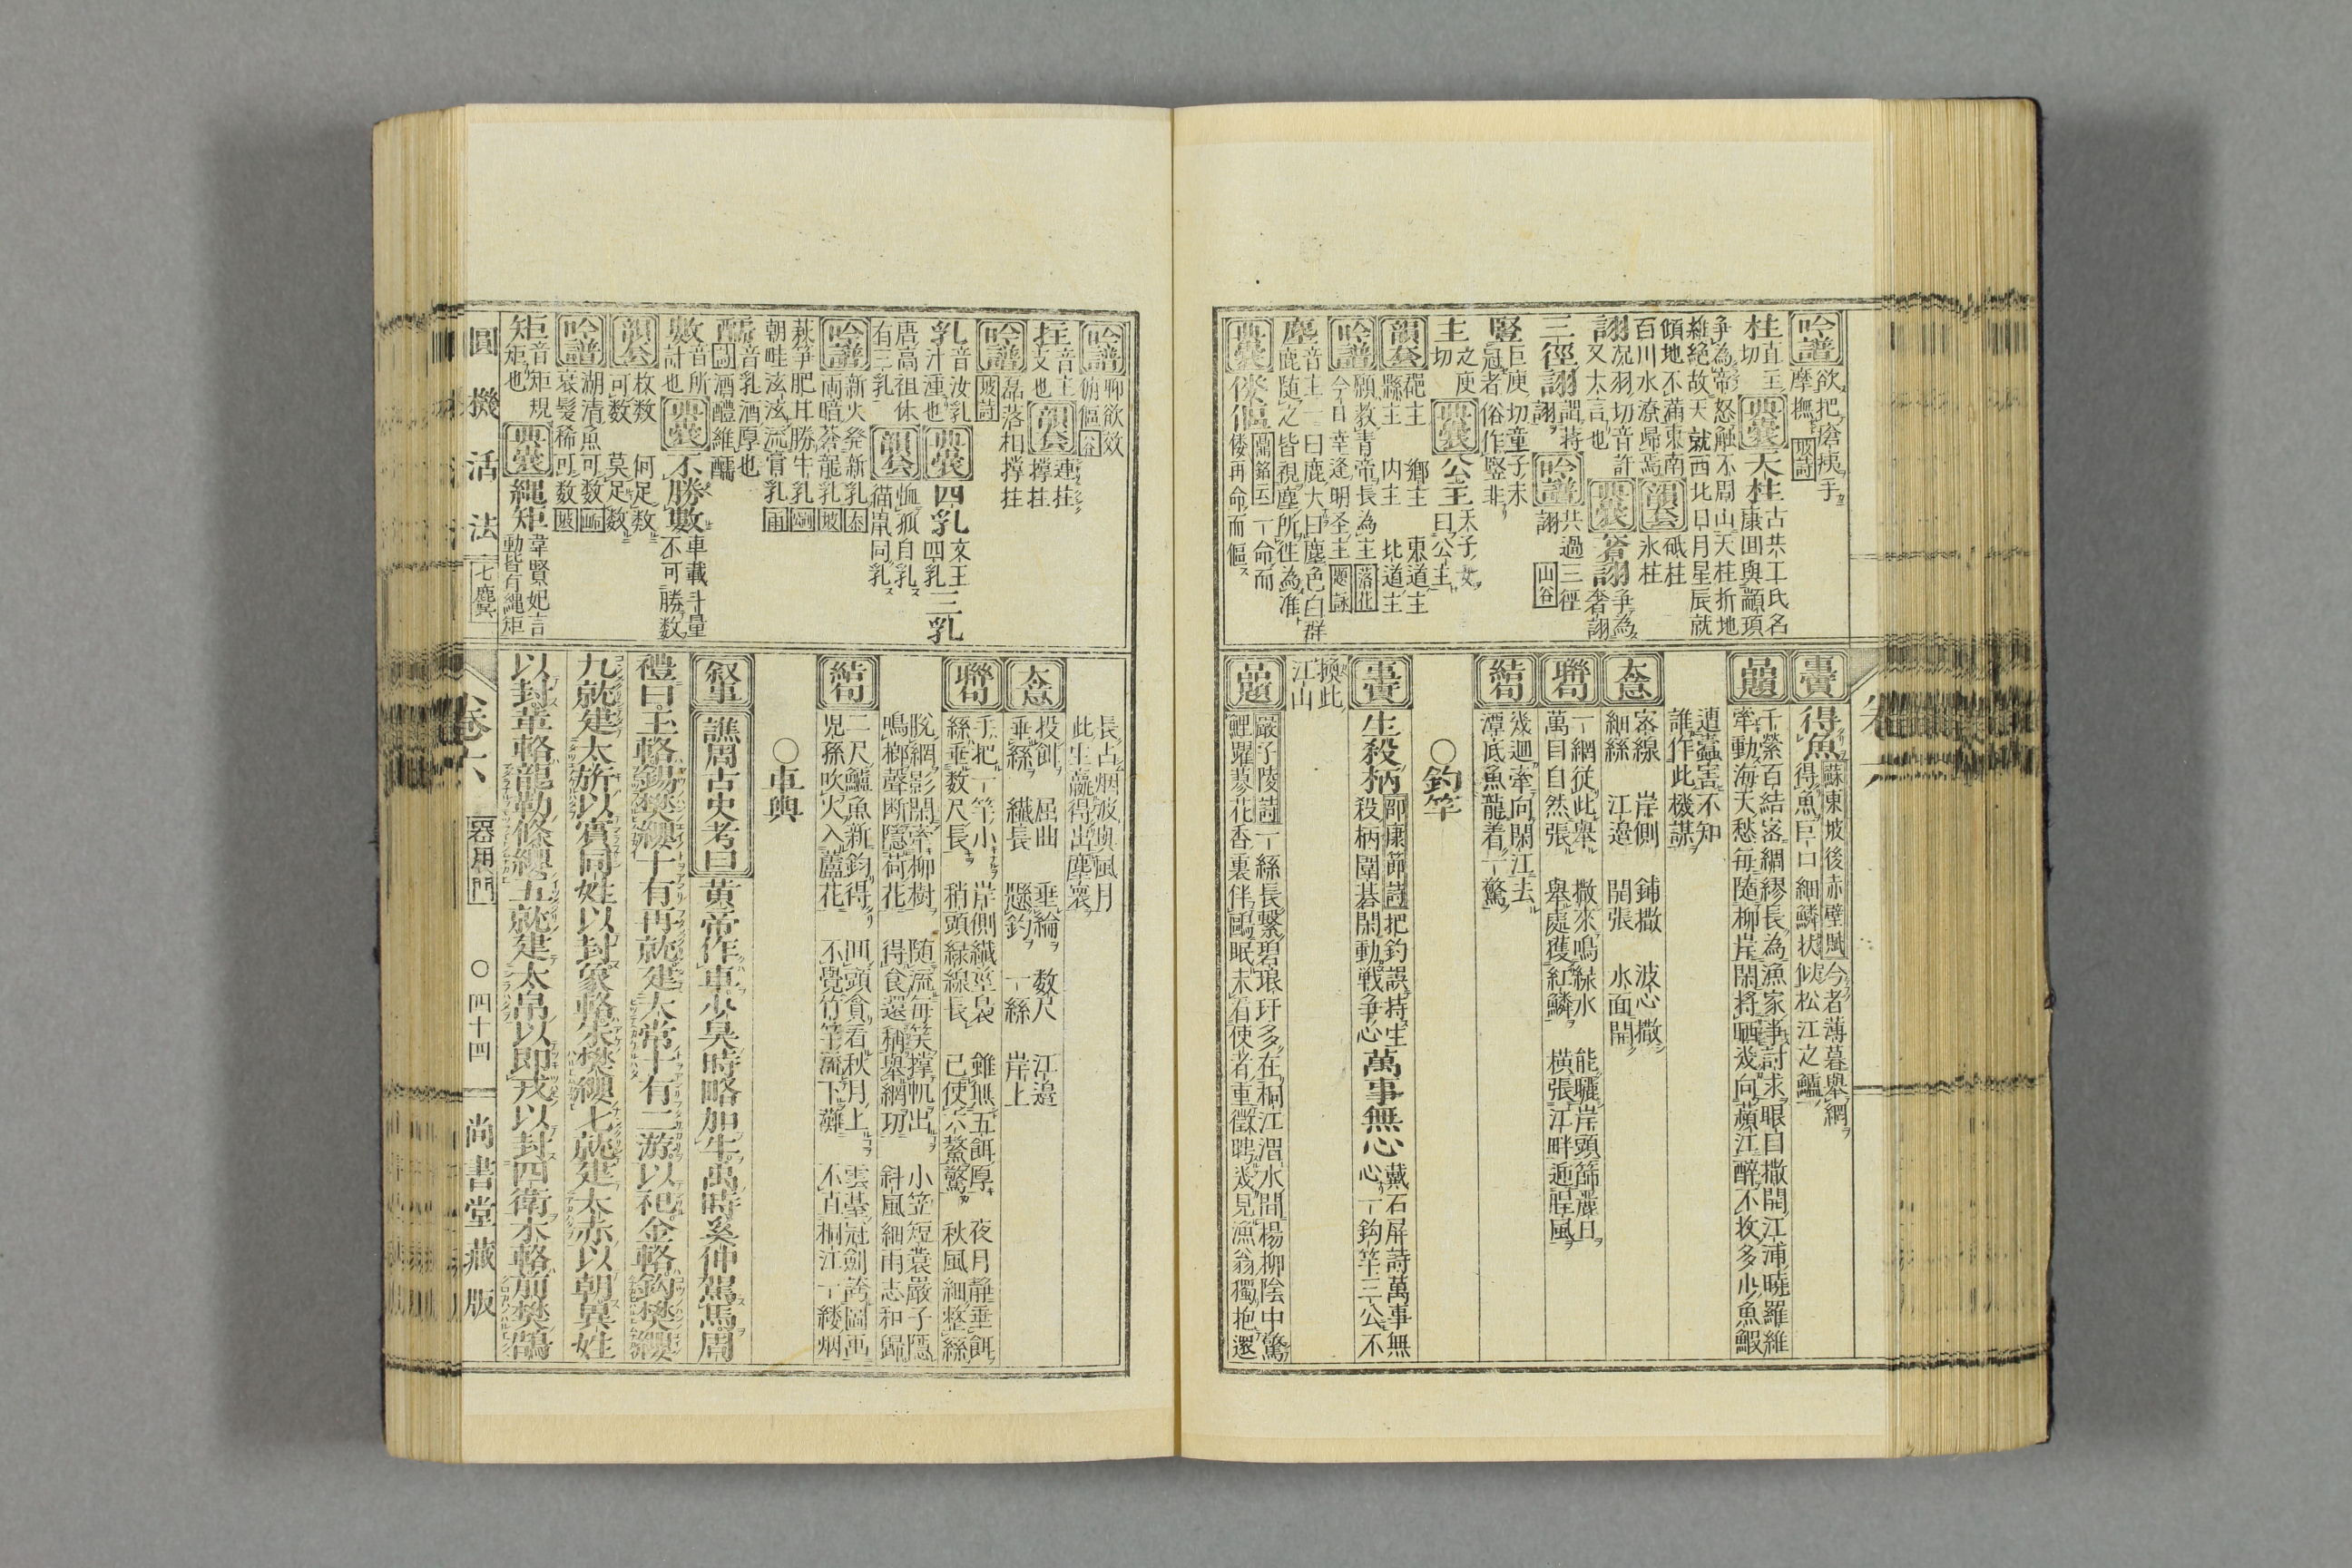 吟譜
欲把瘡痍手
摩撫
坡詩
柱
直主
切
典叢
天柱
古共工氏名
康回與顓頊
争為帝怒触不周山天柱折地
維絶故天就西北日月星辰就
傾地不満東南
百川水潦歸焉
韻套
砥柱
氷柱
詡
况羽切音許
又大言也
奢詡
争為
奢詡
三徑詡
謂蒋
詡
吟譜
共過三徑
詡
山谷
豎
巨庾切童子未
冠者俗作竪非
主
之庾
切
公主
天子女
曰公主
韻套
縣主
郷主
内主
東道主
北道主
吟譜
願教青帝長為主
落花
今日幸逢明圣主
題詠
麈
音主一曰鹿大曰麈色白群
鹿随之皆視麈所往為准
傴
鼎銘云一命而
傴再命而傴
事實
得魚
蘇東坡後赤壁賦
今者薄暮舉網
得魚巨口細鱗状似松江之鱸
品題
千縈百結宻綢繆長為漁家事討求眼自撒開江浦曉羅維
牽動海天愁毎随柳岸閑將晒幾向蘋江醉不收多少魚鰕
遭蠧害不知
誰作此機謀
大意
宻線
岸側
鋪撒
波心撒
細絲
江邉
開張
水面開
聯句
一網従此舉
撒來鳴緑水
能曬岸頭篩麗日
萬目自然張
舉處獲紅鱗
横張江畔
結句
幾迴牽向閑江去
潭底魚龍着一驚
○釣竿
事實
生殺柄
邵康節詩
把釣誤持生
殺柄圍碁閑動戦争心
萬事無心
戴石屏詩萬事無
心一鈎竿三公不
換此
江山
品題
嚴子陵詩
一絲長繋碧琅玕多在桐江渭水間楊柳陰中驚
鯉躍蓼花香裏伴鷗眠未看使者重徴聘幾見漁翁獨抱還
吟譜
聊欲效
俯傴
谷
拄
音主
支也
韻套
連拄
撑拄
吟譜
坡詩
磊落相撑拄
乳
音汝乳
汁湩也
典叢
四乳
文王
四乳
三乳
唐高祖体
有三乳
韻套
狐自乳
猫鼠同乳
吟譜
新火発新乳
泰
両暗蒼龍乳
坡
萩笋肥甘勝牛乳
朝畦泫泫流膏乳
醹
音乳酒厚也
酒醴維醹
數
音所
計也
不勝數
車載斗量
不可勝数
韻套
枚数
何足数
可数
莫足数
吟譜
潮清魚可数
衰髮稀可数
矩
音矩規
矩也
典叢
繩矩
韋賢妃言
動皆有縄矩
長占烟波與風月
此生贏得出塵寰
大意
投餌
屈曲
垂綸
数尺
江邉
垂絲
繊長
懸釣
一絲
岸上
聯句
手把一竿小
岸側繊莖裊
雖無五餌厚
夜月静垂餌
絲垂数尺長
稍頭緑線長
已使六鰲驚
秋風細整絲
脱網影閑牽柳樹
随流毎笑撑帆出
小笠短蓑嚴子隱
鳴榔聲断隠荷花
得食還稱挙網功
斜風細雨志和歸
結句
二尺鱸魚新釣得
回頭貪看秋月上
雲臺冠劍誇圖画
児孫吹火入蘆花
不覺竹竿流下灘
不直桐江一縷烟
○車輿
叙事
譙周古史考曰
黄帝作車少昊時略加牛禹時奚仲駕馬周
禮曰王輅錫樊纓十有再就建大常十有二游以祀金輅鈎樊纓
九就建大旂以賓同姓以封象輅朱樊纓七就建太赤以朝異姓
以封革輅龍勒條纓五就建太帛以即戎以封四衛木輅前樊鵠
圓機活法
七麌
卷六
器用門
○四十四
尚書堂藏版